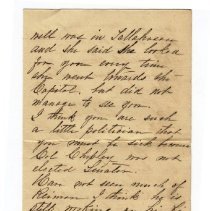 well was in Tallahassee
and she said she looked
for you every time
she went towards the
Capitol, but did not
manage to see you.
I think you are such
a little politician that
you must be sick because
Col Chipley was not
elected Senator.
Have not seen much of
I think he is
still